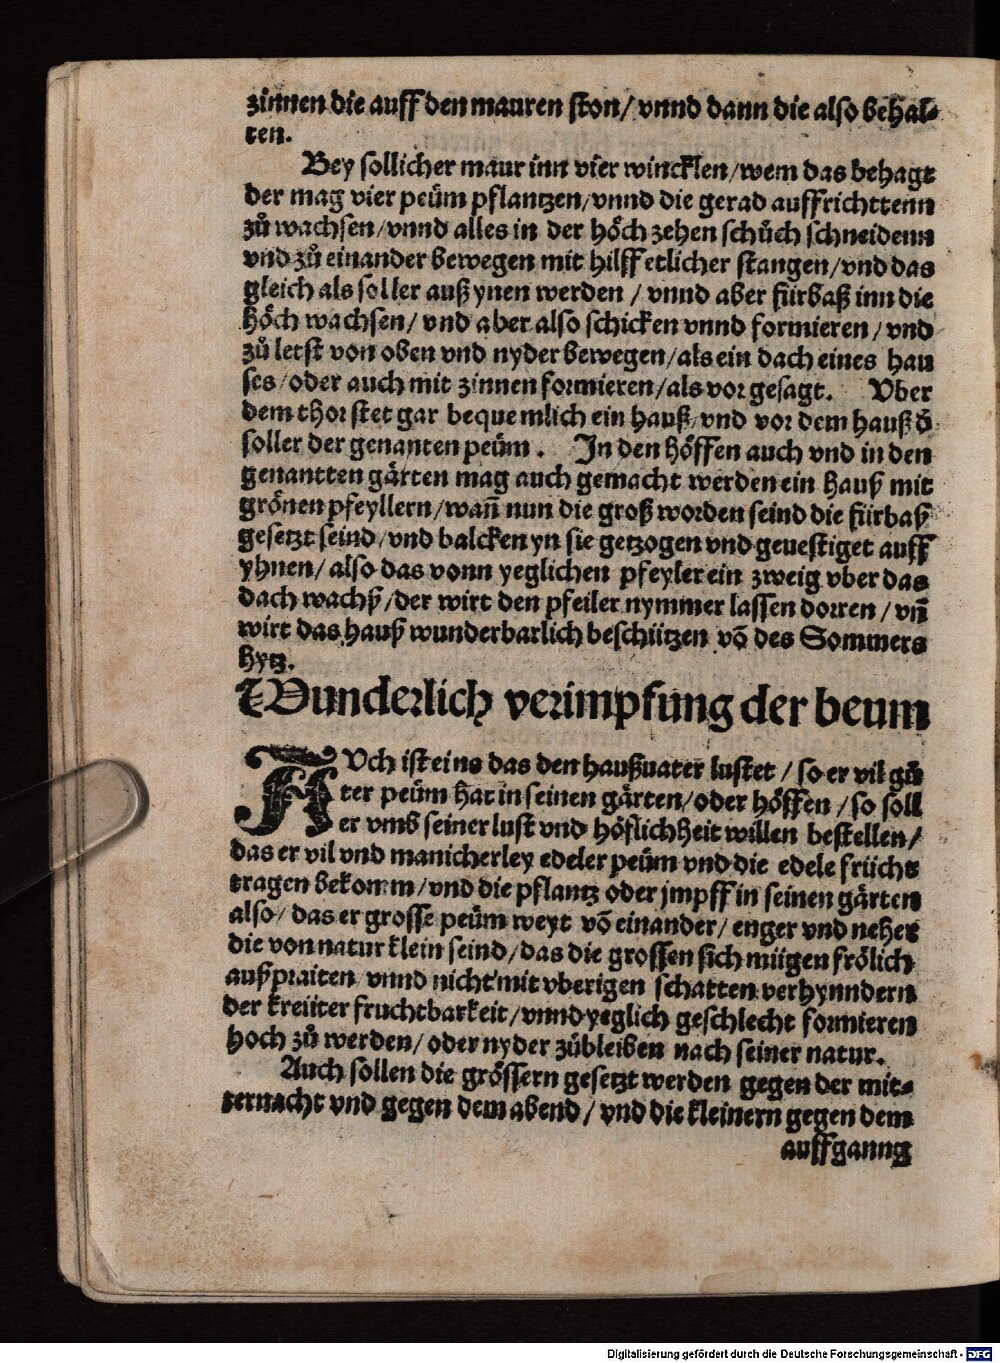 zinnen die auff den mauren ston/ vnnd dann die also behal⸗
ten.
Bey sollicher maur inn vier wincklen/wem das behagt
der mag vier peüm pflantzen/vnnd die gerad auffrichttenn
zů wachsen/vnnd alles in der höch zehen schůch schneidenn
vnd zů einander bewegen mit hilff etlicher stangen/vnd das
gleich als soller auß ynen werden / vnnd aber fürbaß inn die
höch wachsen/ vnd aber also schicken vnnd formieren/ vnd
zů letst von oben vnd nyder bewegen/als ein dach eines hau
ses/oder auch mit zinnen formieren/als vor gesagt. Vber
dem thor stet gar bequemlich ein hauß/vnd vor dem hauß d̕
soller der genanten peüm . In den höffen auch vnd in den
genantten gärten mag auch gemacht werden ein hauß mit
grönen pfeyllern/wañ nun die groß worden seind die fürbaß
gesetzt seind/vnd balcken yn sie getzogen vnd geuestiget auff
yhnen/ also das vonn yeglichen pfeyler ein zweig vber das
dach wachß/der wirt den pfeiler nymmer lassen dorren/ vñ
wirt das hauß wunderbarlich beschützen võ des Sommers
hytz.
Wunderlich verimpfung der beum
AVch ist eins das den haußuater lustet / so er vil gů
ter peüm hat in seinen gärten/oder höffen /so soll
er vmb seiner lust vnd höflichheit willen bestellen/
das er vil vnd manicherley edeler peüm vnd die edele frücht
tragen bekomm/vnd die pflantz oder jmpff in seinen gärten
also/ das er grosse peüm weyt võ einander/ enger vnd neher
die von natur klein seind/das die grossen sich mügen frölich
außpraiten/vnnd nicht mit vberigen schatten verhynndern
der kreüter fruchtbarkeit/vnnd yeglich geschlecht formieren
hoch zů werden/ oder nyder zůbleiben nach seiner natur.
Auch sollen die grössern gesetzt werden gegen der mit⸗
ternacht vnd gegen dem abend/ vnd die kleinern gegen dem
auffganng
Digitalisierung gefördert durch die Deutsche Forschungsgemeinschaft - DFG